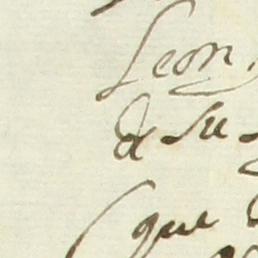 Leon,
de su
(que